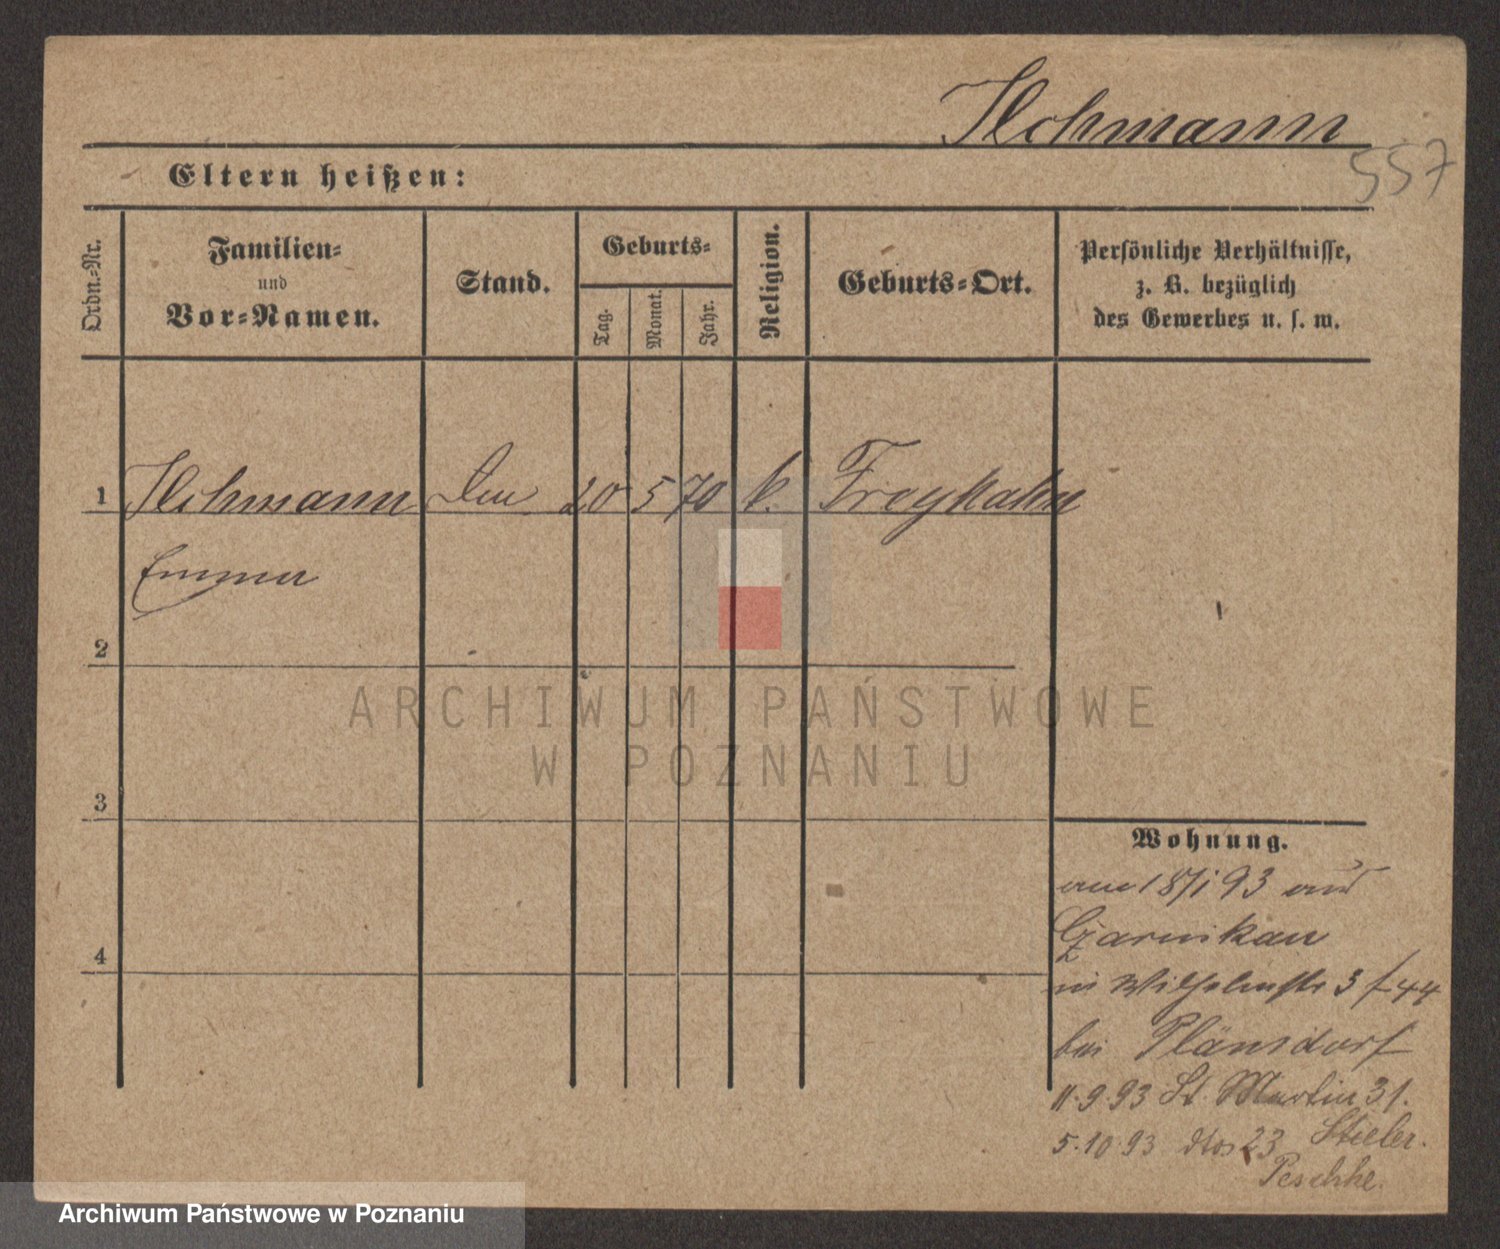 Flohmann
557
Eltern heißen:
Ordn.=Nr.
Familien=
und
Vor=Namen.
Stand.
Geburts=
Tag.
Monat.
Jahr.
Religion.
Geburts=Ort.
Persönliche Verhältnisse,
z. B. bezüglich
des Gewerbes u. s. w.
1 Flohmann 20 5 70 k.
Emma
2
3
4
ARCHIWUM PAŃSTWOWE
W POZNANIU
Wohnung.
am 18/1 93 aus
Czarnikau
in Wilhelmstr 3
bei Plänsdorf
11.9.93 St. Martin 31.
Stieler.
5.10.93 dto 23
Peschke.
Archiwum Państwowe w Poznaniu